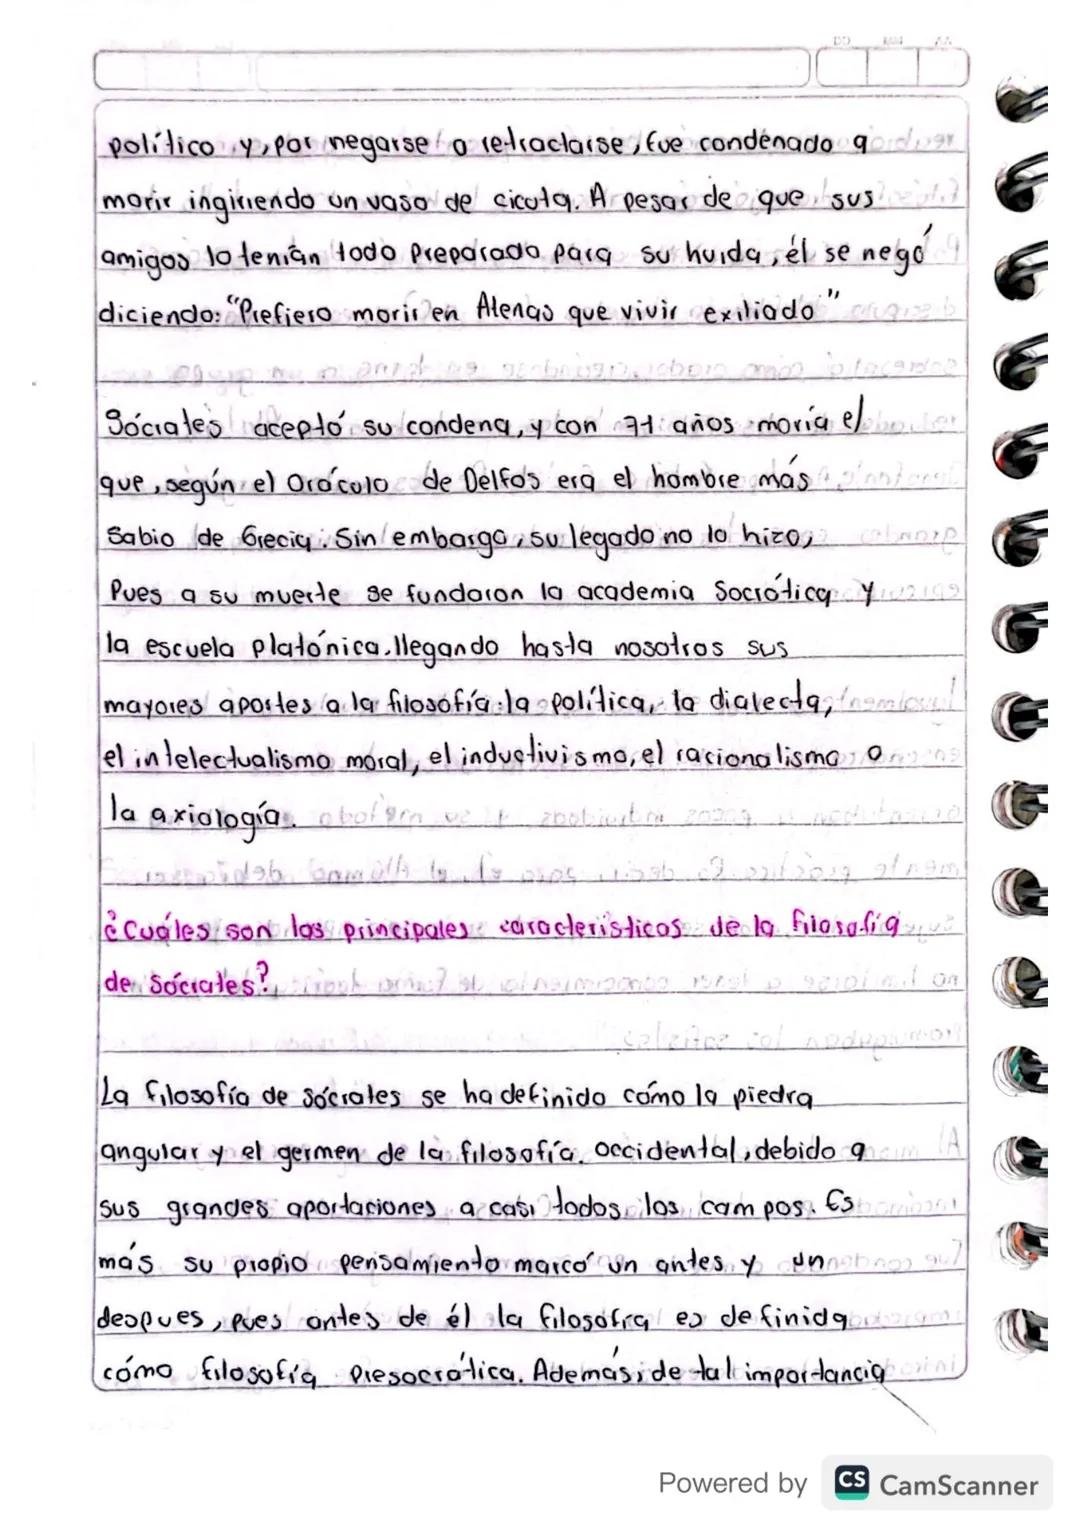 DD MM AA
político y, por negarse a retractarse, fue condenado a
morir ingiriendo un vaso de cicuta. A pesar de que sus
amigos lo tenían todo preparado para su huida, él se negó
diciendo: "Prefiero morir en Atenas que vivir exiliado"
Sócrates aceptó su condena, y con 71 años moría el
que, según el Orácúlo de Delfos era el hombre más
Sabio de Grecia. Sin embargo, su legado no lo hizo,
Pues a su muerte se fundaron la academia Socrótica y
la escuela platónica. llegando hasta nosotros sus
mayores aportes a la filosofía: la política, la dialecta,
el intelectualismo moral, el inductivismo, el racionalismo o
la axiología.
¿Cuáles son las principales característicos de la filosofía
de Sócrates?
La filosofía de sócrates se ha definido cómo la piedra
angular y el germen de la filosofía. occidental, debido a
sus grandes aportaciones a casi todos los campos. Es
más su propio pensamiento marcó un antes y un
despues, pues antes de él la filosófía es definida
cómo filosofía Presocrática. Además, de tal importancia
Powered by CS CamScanner